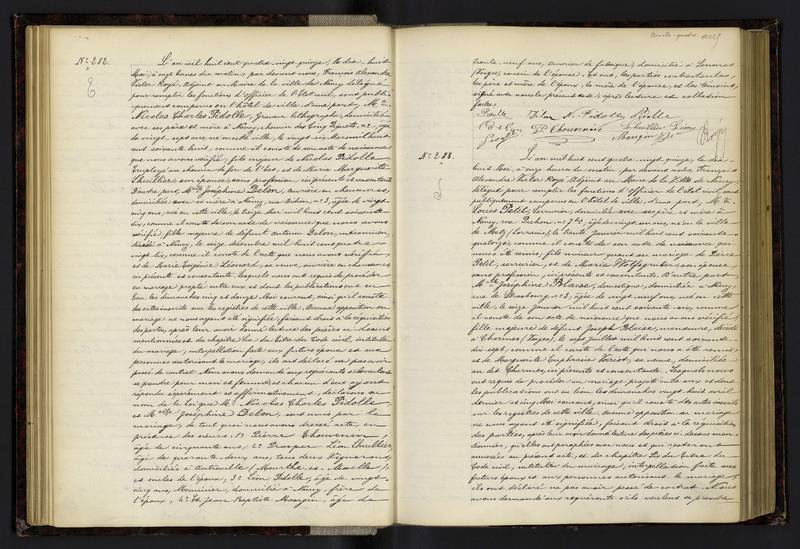 N° 282.
L'an mil huit cent quatre vingt quinze, le dix huit
Mai, à onze heures du matin, par devant nous, François Alexandre
Victor Royé, Adjoint au Maire de la ville de Nancy délégué
pour remplir les fonctions d'Officier de l'Etat civil, sont publi
quement comparus en l'hôtel de ville, d'une part, Mr.
Nicolas Charles Pidolle, Graveur lithographe, domicilié
avec ses père et mère à Nancy, chemin des Cinq Piquets, âgé
de vingt sept ans, né en cette ville, le vingt six Mars mil huit
cent soixante huit, comme il conste de son acte de naissance
que nous avons vérifié, fils majeur de Nicolas Pidolle
Employé au chemin de fer de l'Est, et de Marie Marguerite
Thuillier, son épouse, sans profession, ici présents et consentants
D'autre part, Melle Joséphine Delon, ouvrière en chaussures,
domiciliée avec sa mère à Nancy, âgée de vingt
cinq ans, née en cette ville, le treize mil huit cent soixante
dix, comme il conste de son acte de naissance que nous avons
vérifié, fille majeure de défunt Antoine Delon, mécanicien,
décédé à Nancy, le seize décembre mil huit cent quatre
vingt dix, comme il conste de l'acte que nous avons vérifié
et de Marie Eugénie Léonard, sa veuve, ouvrière en chaussures
ici présente et consentante. Lesquels nous ont requis de procéder
au mariage projeté entre eux et dont les publications ont eu
lieu les dimanches cinq et douze Mai courant, ainsi qu'il conste
des actes inscrits sur les registres de cette ville. Aucune opposition au
mariage ne nous ayant été signifiée, faisant droit à la réquisition
des parties, après leur avoir donné lecture des pièces ci-dessus
mentionnées et du chapitre six du titre du Code civil, intitulé
du mariage, interpellation faite aux futurs époux et aux
personnes autorisant le mariage, ils ont déclaré ne pas avoir
passé de contrat. Nous avons demandé aux requérants s'ils veulent
se prendre pour mari et femme, et chacun d'eux ayant
répondu séparément et affirmativement, déclarons au
nom de la loi que Mr. Nicolas Charles Pidolle
et Melle Joséphine Delon, sont unis par le
mariage; de tout quoi nous avons dressé acte, en
présence des sieurs: 1° Pierre Chouvenin
âgé de cinquante ans, 2° Prosper Léon Thuillier
âgé de quarante deux ans, tous deux Vignerons,
domiciliés à Autreville (Meurthe et Moselle)
et oncles de l'époux, 3° Léon Pidolle, âgé de vingt
cinq ans, Menuisier, domicilié à Nancy, frère de
l'époux, 4° et Jean Baptiste Mangin, âgé de
trente neuf ans, ouvrier de fabrique, domicilié à
(Vosges), cousin de l'épouse. Et ont, les parties contractantes,
les père et mère de l'époux, la mère de l'épouse, et les témoins,
signé avec nous le présent acte, après lecture et collation
faites.
Delon N. Pidolle
P. Chouvenin
Mangin
Royé
N° 283.
L'an mil huit cent quatre vingt quinze, le dix
huit Mai, à onze heures du matin par devant nous, François
Alexandre Victor Royé Adjoint au Maire de la Ville de Nancy
délégué pour remplir les fonctions d'Officier de l'Etat civil, sont
publiquement comparus en l'hôtel de ville, d'une part, Mr.
Louis Petit, Serrurier, domicilié avec ses père et mère à
Nancy, âgé de vingt un ans, né en la ville
de Metz (Lorraine), le trente Janvier mil huit cent soixante
quatorze, comme il conste de son acte de naissance qui
nous a été remis, fils mineur de Pierre
Petit, serrurier, et de Marie, son épouse,
sans profession, ici présents et consentants. D'autre part,
Melle Joséphine Blaise, domestique, domiciliée à Nancy,
rue de Strasbourg, n° 3, âgée de vingt neuf ans, née en cette
ville, le seize Janvier mil huit cent soixante six, comme
il conste de son acte de naissance que nous avons vérifié,
fille majeure de défunt Joseph Blaise, manoeuvre, décédé
à Charmes (Vosges), le sept Juillet mil huit cent soixante
dix sept, comme il conste de l'acte qui nous a été remis,
et de Marguerite Euphrasie Voirist, sa veuve, domiciliée
au dit Charmes, ici présente et consentante. Lesquels nous
ont requis de procéder au mariage projeté entre eux et dont
les publications ont eu lieu les dimanches vingt huit avril
dernier et cinq Mai courant, ainsi qu'il conste des actes inscrits
sur les registres de cette ville. Aucune opposition au mariage
ne nous ayant été signifiée, faisant droit à la réquisition
des parties, après leur avoir donné lecture des pièces ci-dessus men-
tionnées, qu'elles ont paraphées et qui resteront
annexées au présent acte, et du chapitre six du titre du
Code civil, intitulé du mariage, interpellation faite aux
futurs époux et aux personnes autorisant le mariage,
ils ont déclaré ne pas avoir passé de contrat. Nous
avons demandé aux requérants s'ils veulent se prendre